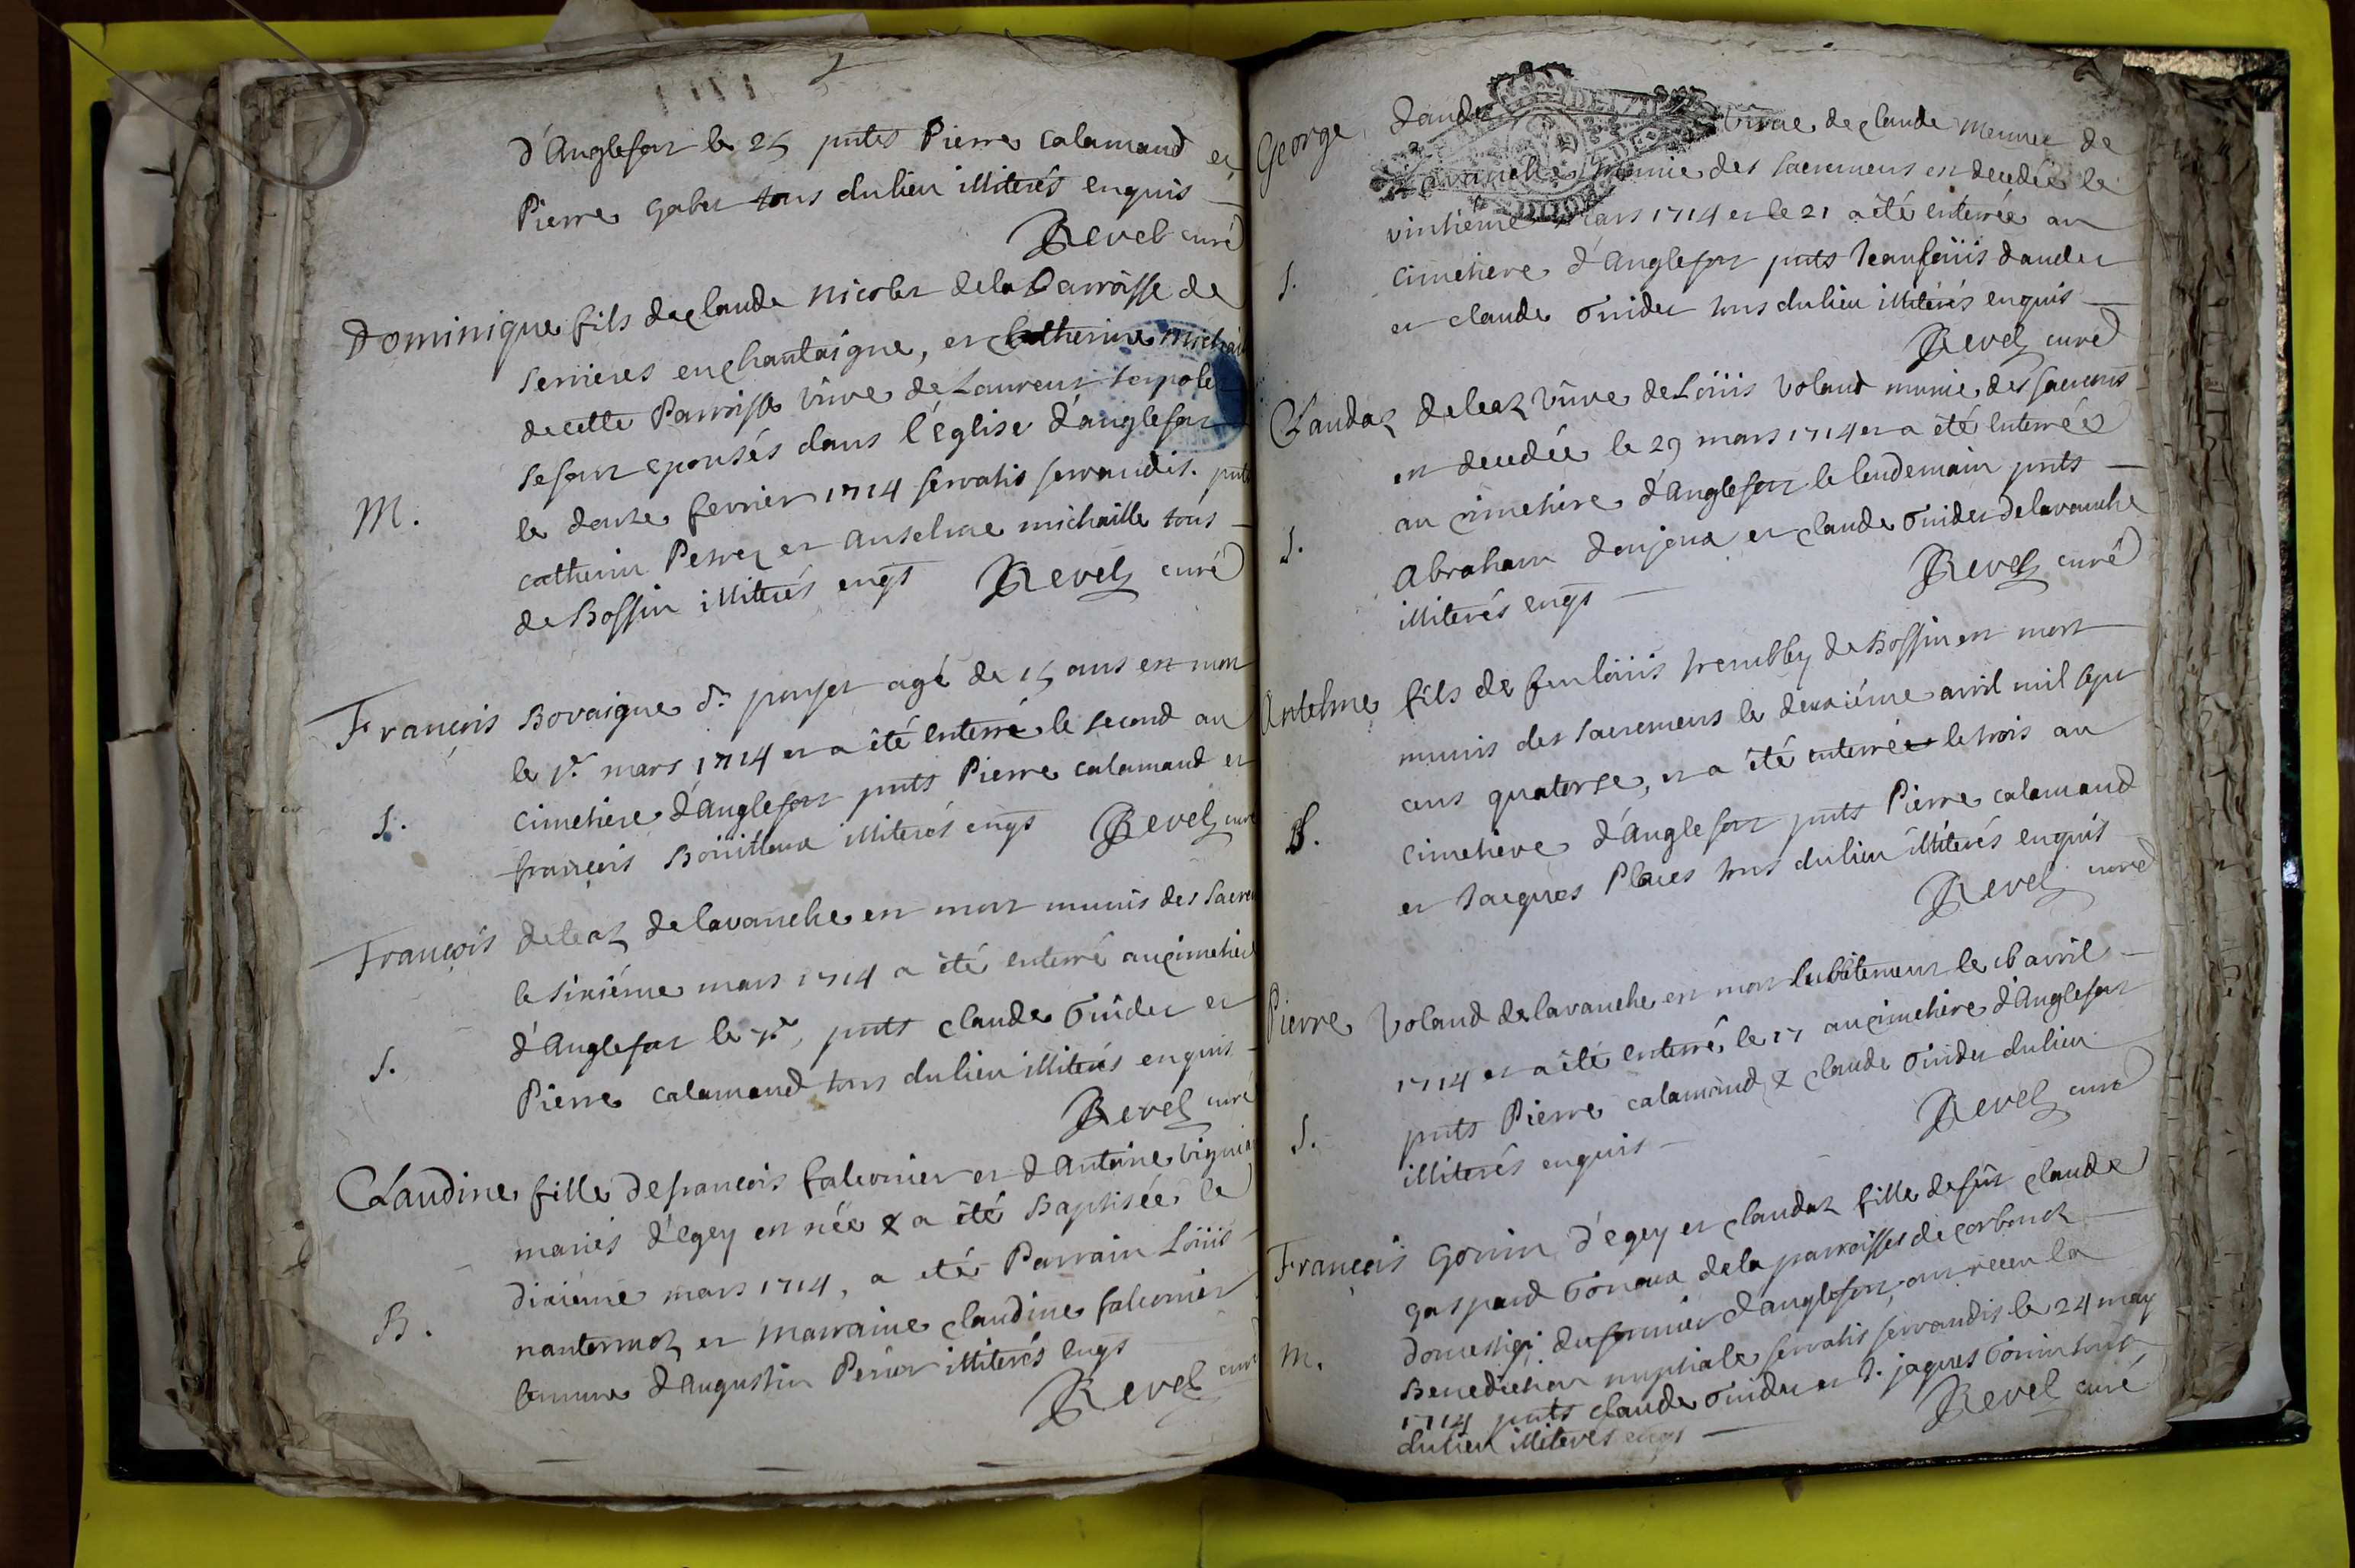 d'Anglefort le 25 pnts Pierre calamand et
Pierre Gaber tous du lieu illiterés enquis
Revel curé
Dominique fils de claude Nicolet de la Parroisse de
Serrieres en chautaigne, et Catherine Michaille
de cette Parroisse vüve de Laurent
se sont epousés dans l'église d'anglefort
M.
le douze fevrier 1714 servatis servandis. pnts
catherin Perrez et Anselme michaille tous
de Bossin illiterés enqs Revel curé
François Bovaigne dt ponset agé de 15 ans est mort
le 1r. mars 1714 et a été enterré le second au
S.
cimetiere d'Anglefort pnts Pierre calamand et
françois Boüilloux illiterés enqs Revel curé
François deleaz de lavanche est mort munis des Sacre
le sixiéme mars 1714 a été enterré au cimetiere
S.
d'Anglefort le 7e, pnts claude Guider et
Pierre calamand tous du lieu illiterés enquis
Revel curé
Claudine fille de françois falconier et d'Antoine
mariés d'égey est née & a été Baptisée le
dixiéme mars 1714, a été Parrain Loüis
B.
nantermoz et Marraine claudine falconier
femme d'Augustin Perier illiterés enqs
Revel curé
George Dauder vüve de claude Meunier de
lavanche munie des sacremens est decedée le
vintiéme mars 1714 et le 21 a été enterrée au
S.
cimetiere d'Anglefort pnts Jean loüis dauder
et claude Guider tous du lieu illiterés enquis
Revel curé
Claudaz deleaz vüve de Loüis Voland munie des sacremens
est decedée le 29 mars 1714 et a été enterrée
au cimetiere d'Anglefort le lendemain pnts
S.
Abraham donjoux et claude Guider de lavanche
illiterés enqs Revel curé
Antelme fils de feu loüis trembley de Bossin est mort
munis des sacremens le deuxiéme avril mil sept
cens quatorse, et a été enterré le trois au
S.
cimetiere d'Anglefort pnts Pierre calamand
et Jacques Places tous du lieu illiterés enquis
Revel curé
Pierre Voland de lavanche est mort subitement le 16 avril
1714 et a été enterré le 17 au cimetiere d'Anglefort
S.
pnts Pierre calamand & claude Guider du lieu
illiterés enquis Revel curé
François Gonin d'égey et claudaz fille de fût claude
gaspard Goneux de la parroisse de corbonoz
M.
domestiq. du fermier d'anglefort, ont receu la
Benediction nuptiale servatis servandis le 24 may
1714 pnts claude Guider et h. jaques Gonin tous
du lieu illiterés enqs Revel curé